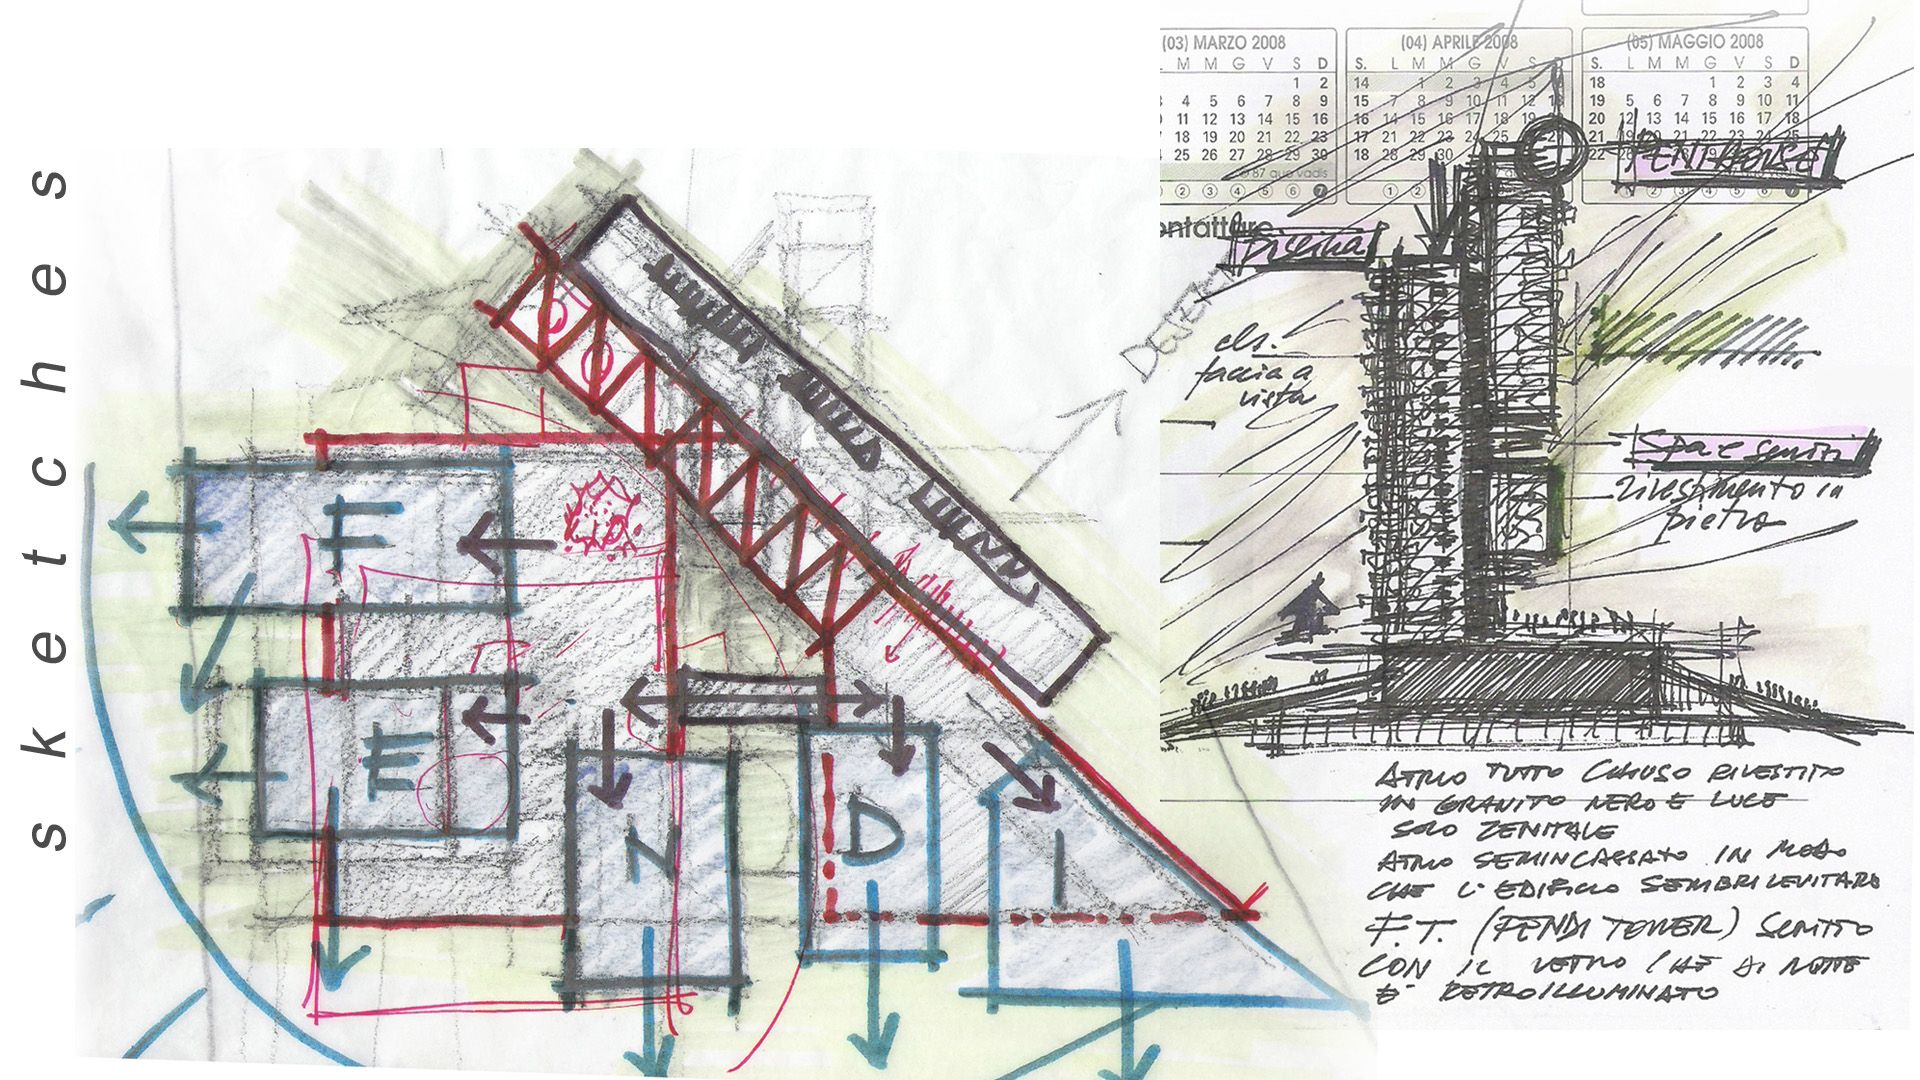 sketches
F
E
N
D
I
DESERT
(03) MARZO 2008
M M G V S D
1 2
4 5 6 7 8 9
11 12 13 14 15 16
18 19 20 21 22 23
25 26 27 28 29 30
(04) APRILE 2008
S. L M M G V S D
14 1 2 3 4 5
15 7 8 9 10 11 12 13
16 14 15 16 17 18 19
17 21 22 23 24 25
18 28 29 30
© 87 quo vadis
(05) MAGGIO 2008
S. L M M G V S D
18 1 2 3 4
19 5 6 7 8 9 10 11
20 12 13 14 15 16 17 18
21 19 20 21 22 23 24 25
22
ontattare
PENTHOUSE
piscina
cls.
faccia a
vista
Spa e servizi
rivestimento in
pietra
ATRIO TUTTO CHIUSO RIVESTITO
IN GRANITO NERO E LUCE
SOLO ZENITALE
ATRIO SEMINCASSATO IN MODO
CHE L'EDIFICIO SEMBRI LEVITARE
F.T. (FENDI TOWER) SCRITTO
CON IL VETRO CHE DI NOTTE
E' RETROILLUMINATO